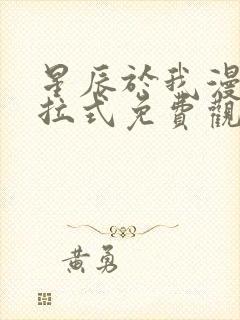 星辰於我漫
拉式免費觀
黃勇